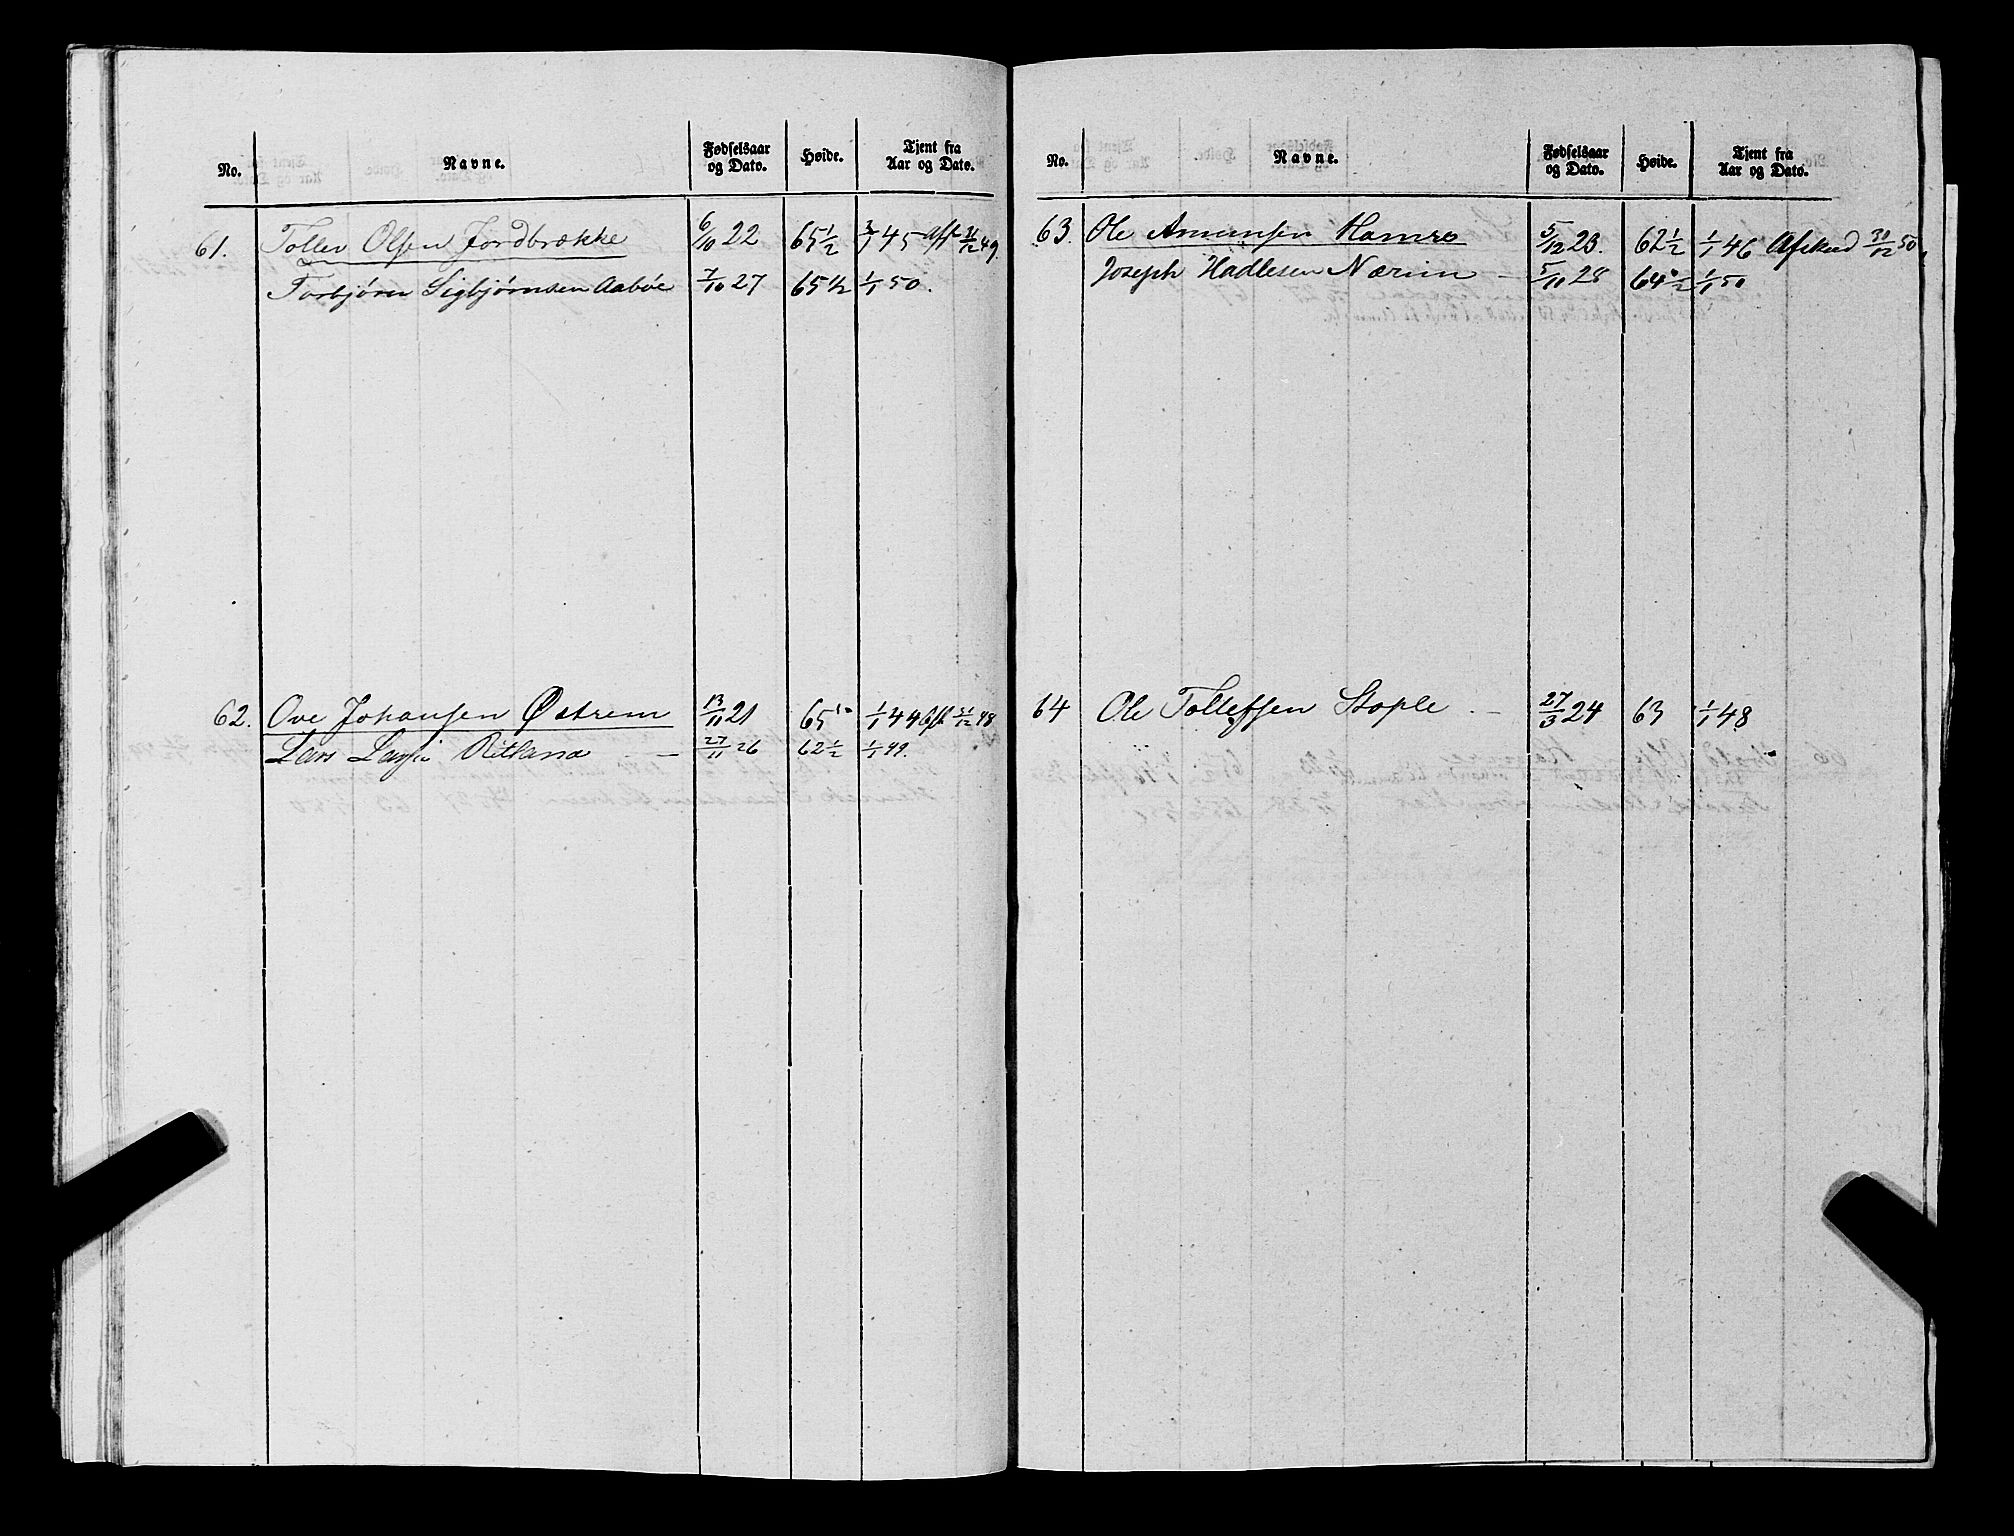 No. Navne. Fødselsaar og Dato. Høide. Tjent fra Aar og Dato.
61. Tollev Olsen Jordbrække 6/10 22 65 1/2 3/1 45 Afsk 31/12 49.
Torbjørn Sigbjørnsen Aabøe 7/10 27 65 1/2 1/1 50.
62. Ove Johansen Østrem 13/11 21 65 1/1 44 Afsk 31/12 48
Lars Larsen Ritland 27/11 26 62 1/2 1/1 49.
No. Navne. Fødselsaar og Dato. Høide. Tjent fra Aar og Dato.
63. Ole Amunsen Hamre 5/12 23. 62 1/2 1/1 46 Afsked 31/12 50.
Joseph Hadlesen Nærim 5/11 28 64 1/2 1/1 50
64 Ole Tollefsen Stople 27/3 24 63 1/1 48